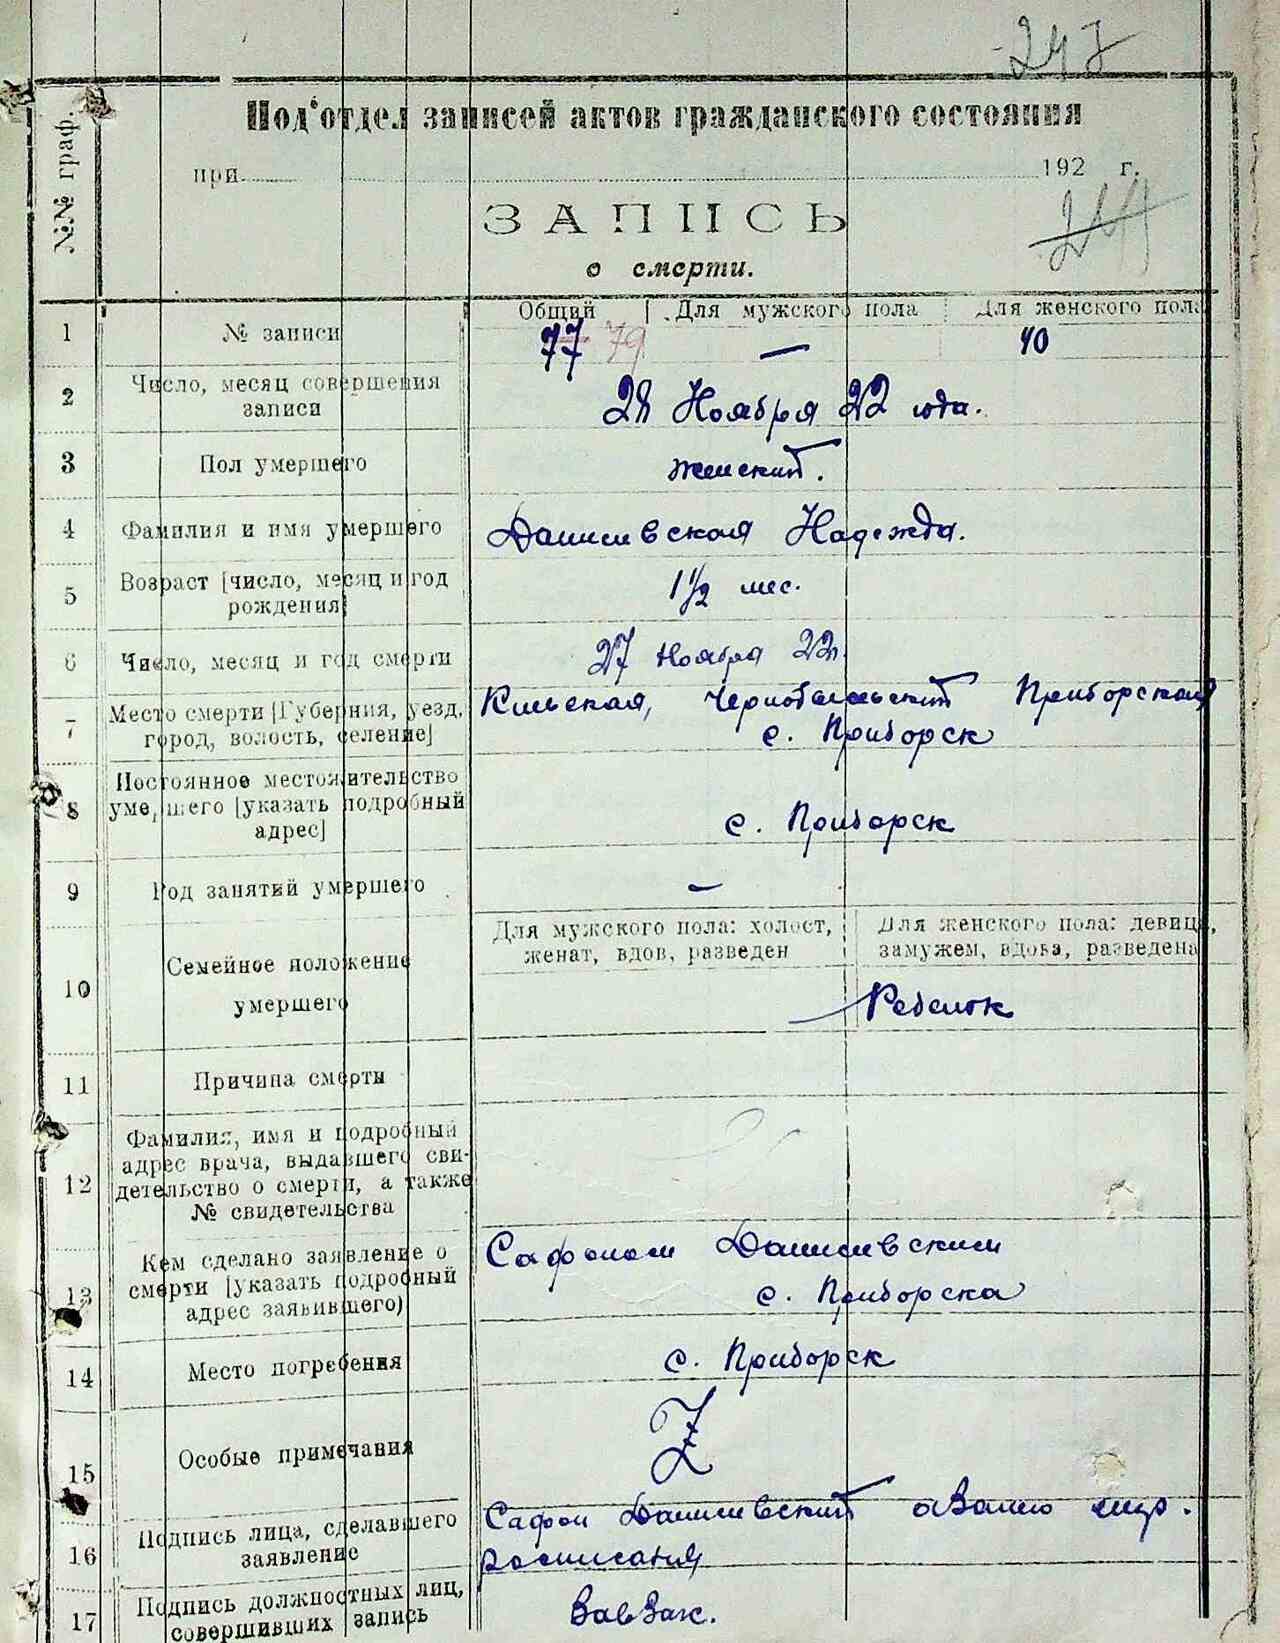 247
Подотдел записей актов гражданского состояния
при 192 г.
ЗАПИСЬ
о смерти.
№№ граф.
Общий Для мужского пола Для женского пола
1 № записи 77 79 — 40
2 Число, месяц совершения записи 28 Ноября 22 года.
3 Пол умершего женский.
4 Фамилия и имя умершего Данилевская Надежда.
5 Возраст [число, месяц и год рождения] 1 1/2 мес.
6 Число, месяц и год смерти 27 Ноября 22 г.
7 Место смерти [Губерния, уезд, Киевская, Чернобыльский Приборская
город, волость, селение] с. Приборск
8 Постоянное местожительство
умершего [указать подробный с. Приборск
адрес]
9 Род занятий умершего —
Для мужского пола: холост, Для женского пола: девица,
женат, вдов, разведен замужем, вдова, разведена
10 Семейное положение
умершего Ребенок
11 Причина смерти
Фамилия, имя и подробный
адрес врача, выдавшего сви-
12 детельство о смерти, а также
№ свидетельства
Кем сделано заявление о Сафоном Данилевским
13 смерти [указать подробный с. Приборска
адрес заявившего)
14 Место погребения с. Приборск
15 Особые примечания Z
Подпись лица, сделавшего Сафон Данилевский
16 заявление
Подпись должностных лиц,
17 совершивших запись